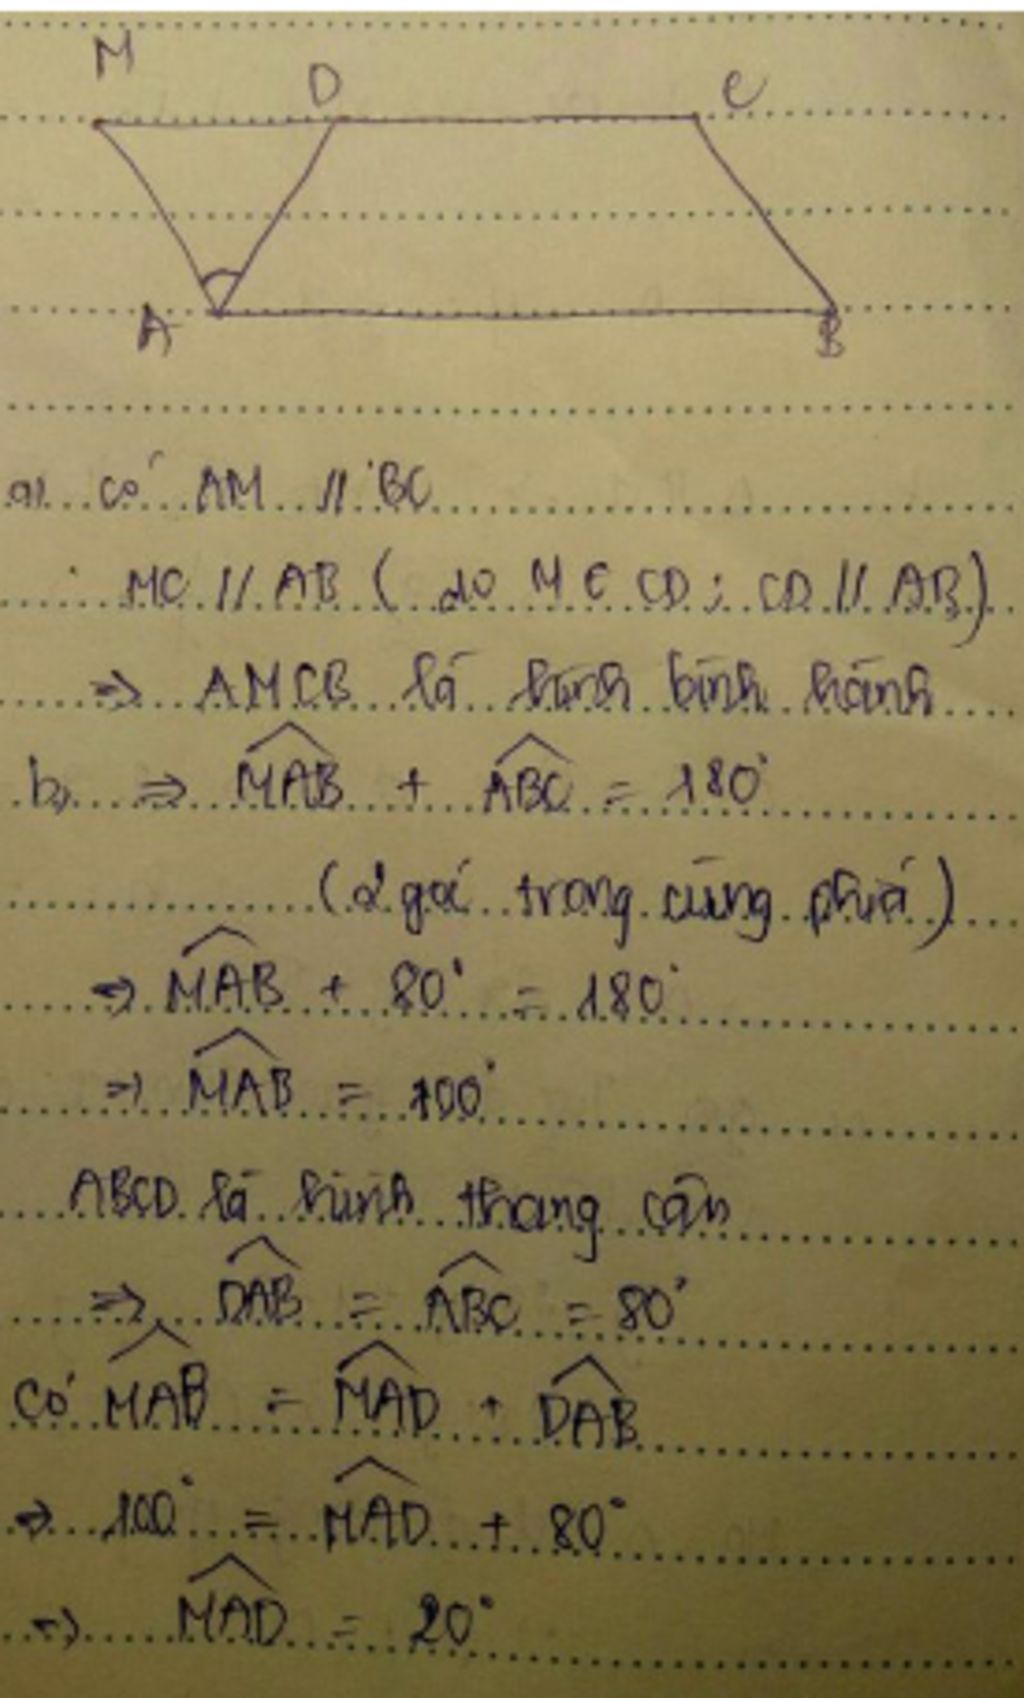 M
D
C
A
B
a) có AM // BC
MC // AB ( do M ∈ CD ; CD // AB)
=> AMCB là hình bình hành
b, => MAB + ABC = 180°
(2 góc trong cùng phía)
=> MAB + 80° = 180°
=> MAB = 100°
ABCD là hình thang cân
=> DAB = ABC = 80°
Có MAB = MAD + DAB
=> 100° = MAD + 80°
=> MAD = 20°